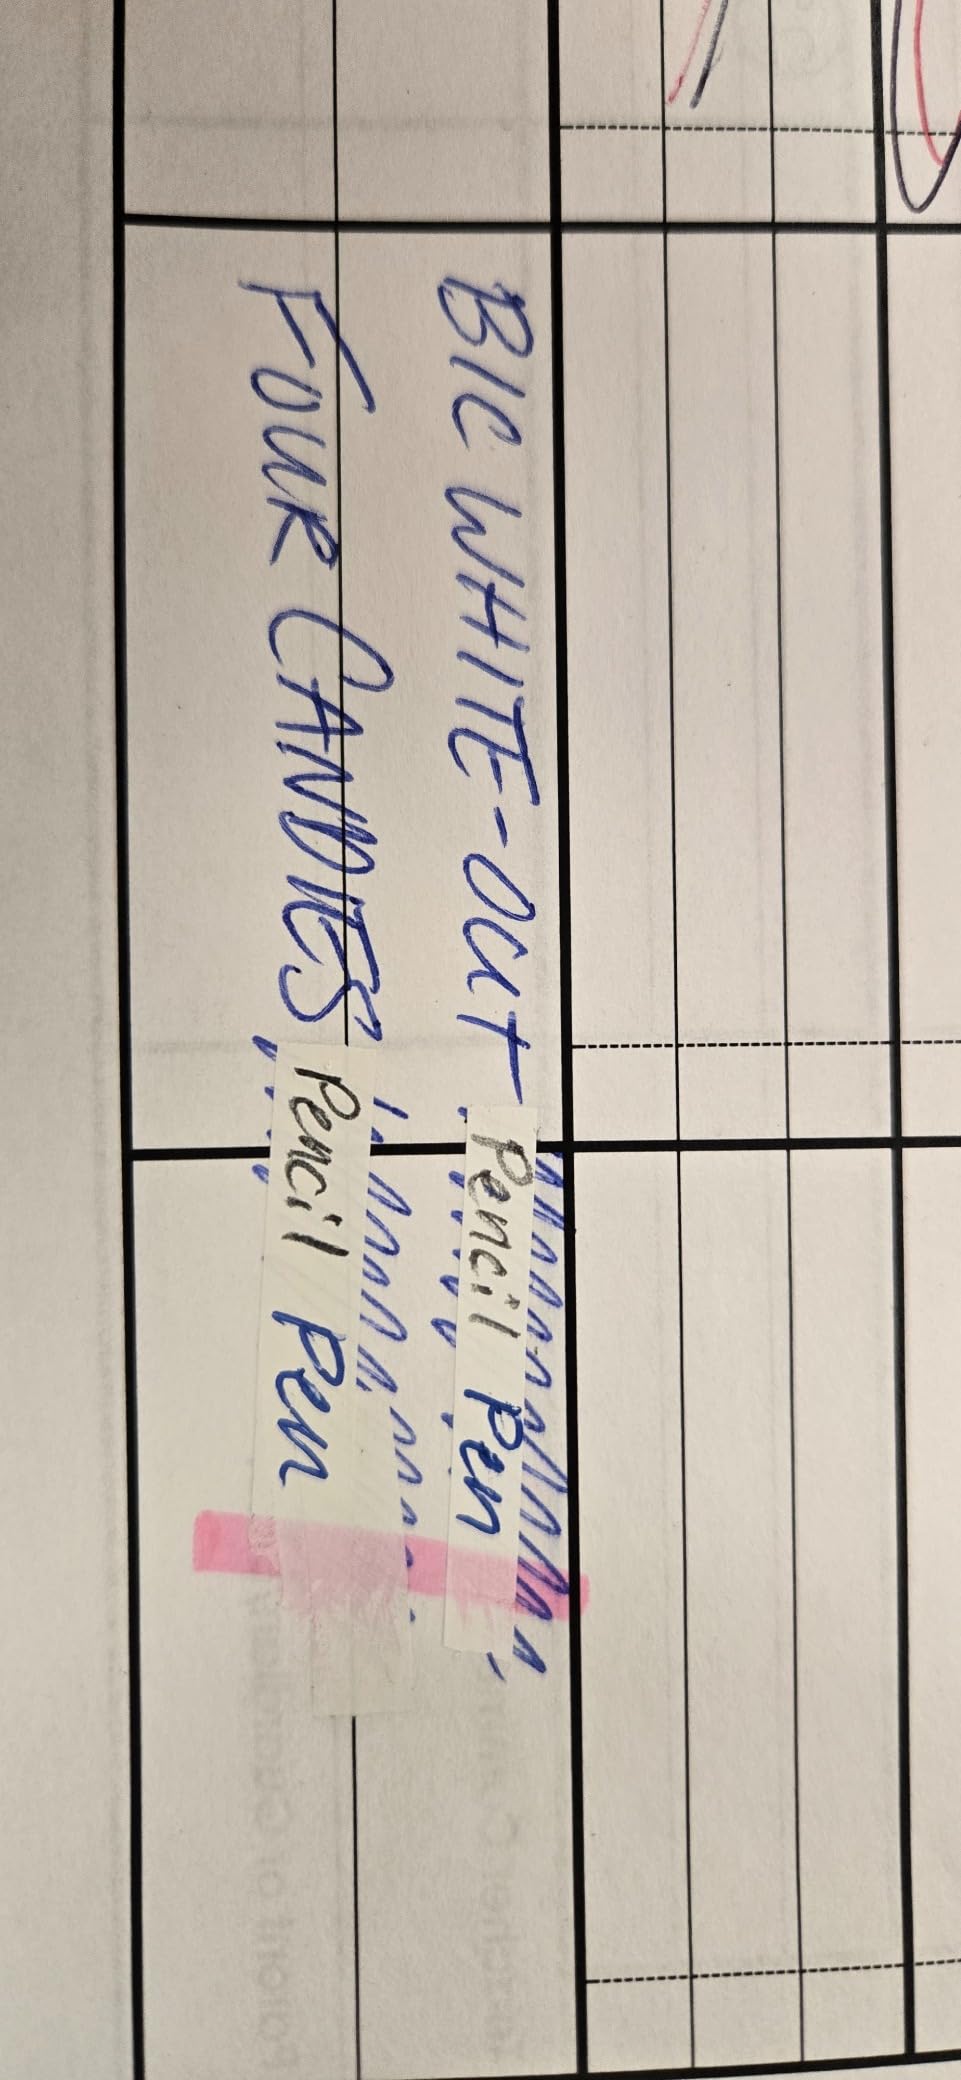 BIC WHITE-OUT Pencil Pen
FOUR CANDIES Pencil Pen